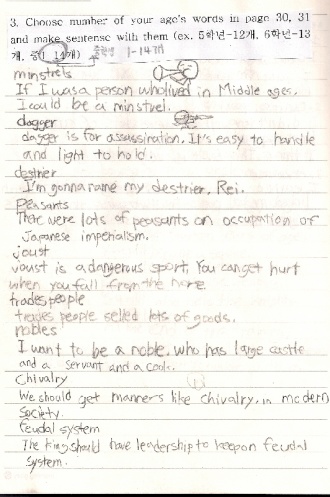 3. Choose number of your age's words in page 30, 31
and make sentense with them (ex. 5학년-12개, 6학년-13
개, 중1 14개) 중학생 1-14개
minstrels
If I was a person who lived in Middle ages.
I could be a minstrel.
dagger
dagger is for assassination. It's easy to handle
and light to hold.
destrier
I'm gonna name my destrier, Rei.
Peasants
There were lots of peasants on occupation of
Japanese imperialism.
joust
joust is a dangerous sport, You can get hurt
when you fall from the horse.
trades people
trades people selled lots of goods.
nobles
I want to be a noble, who has large castle
and a servant and a cook.
Chivalry
We should get manners like chivalry, in modern
society.
feudal system
The king should have leadership to keep on feudal
system.